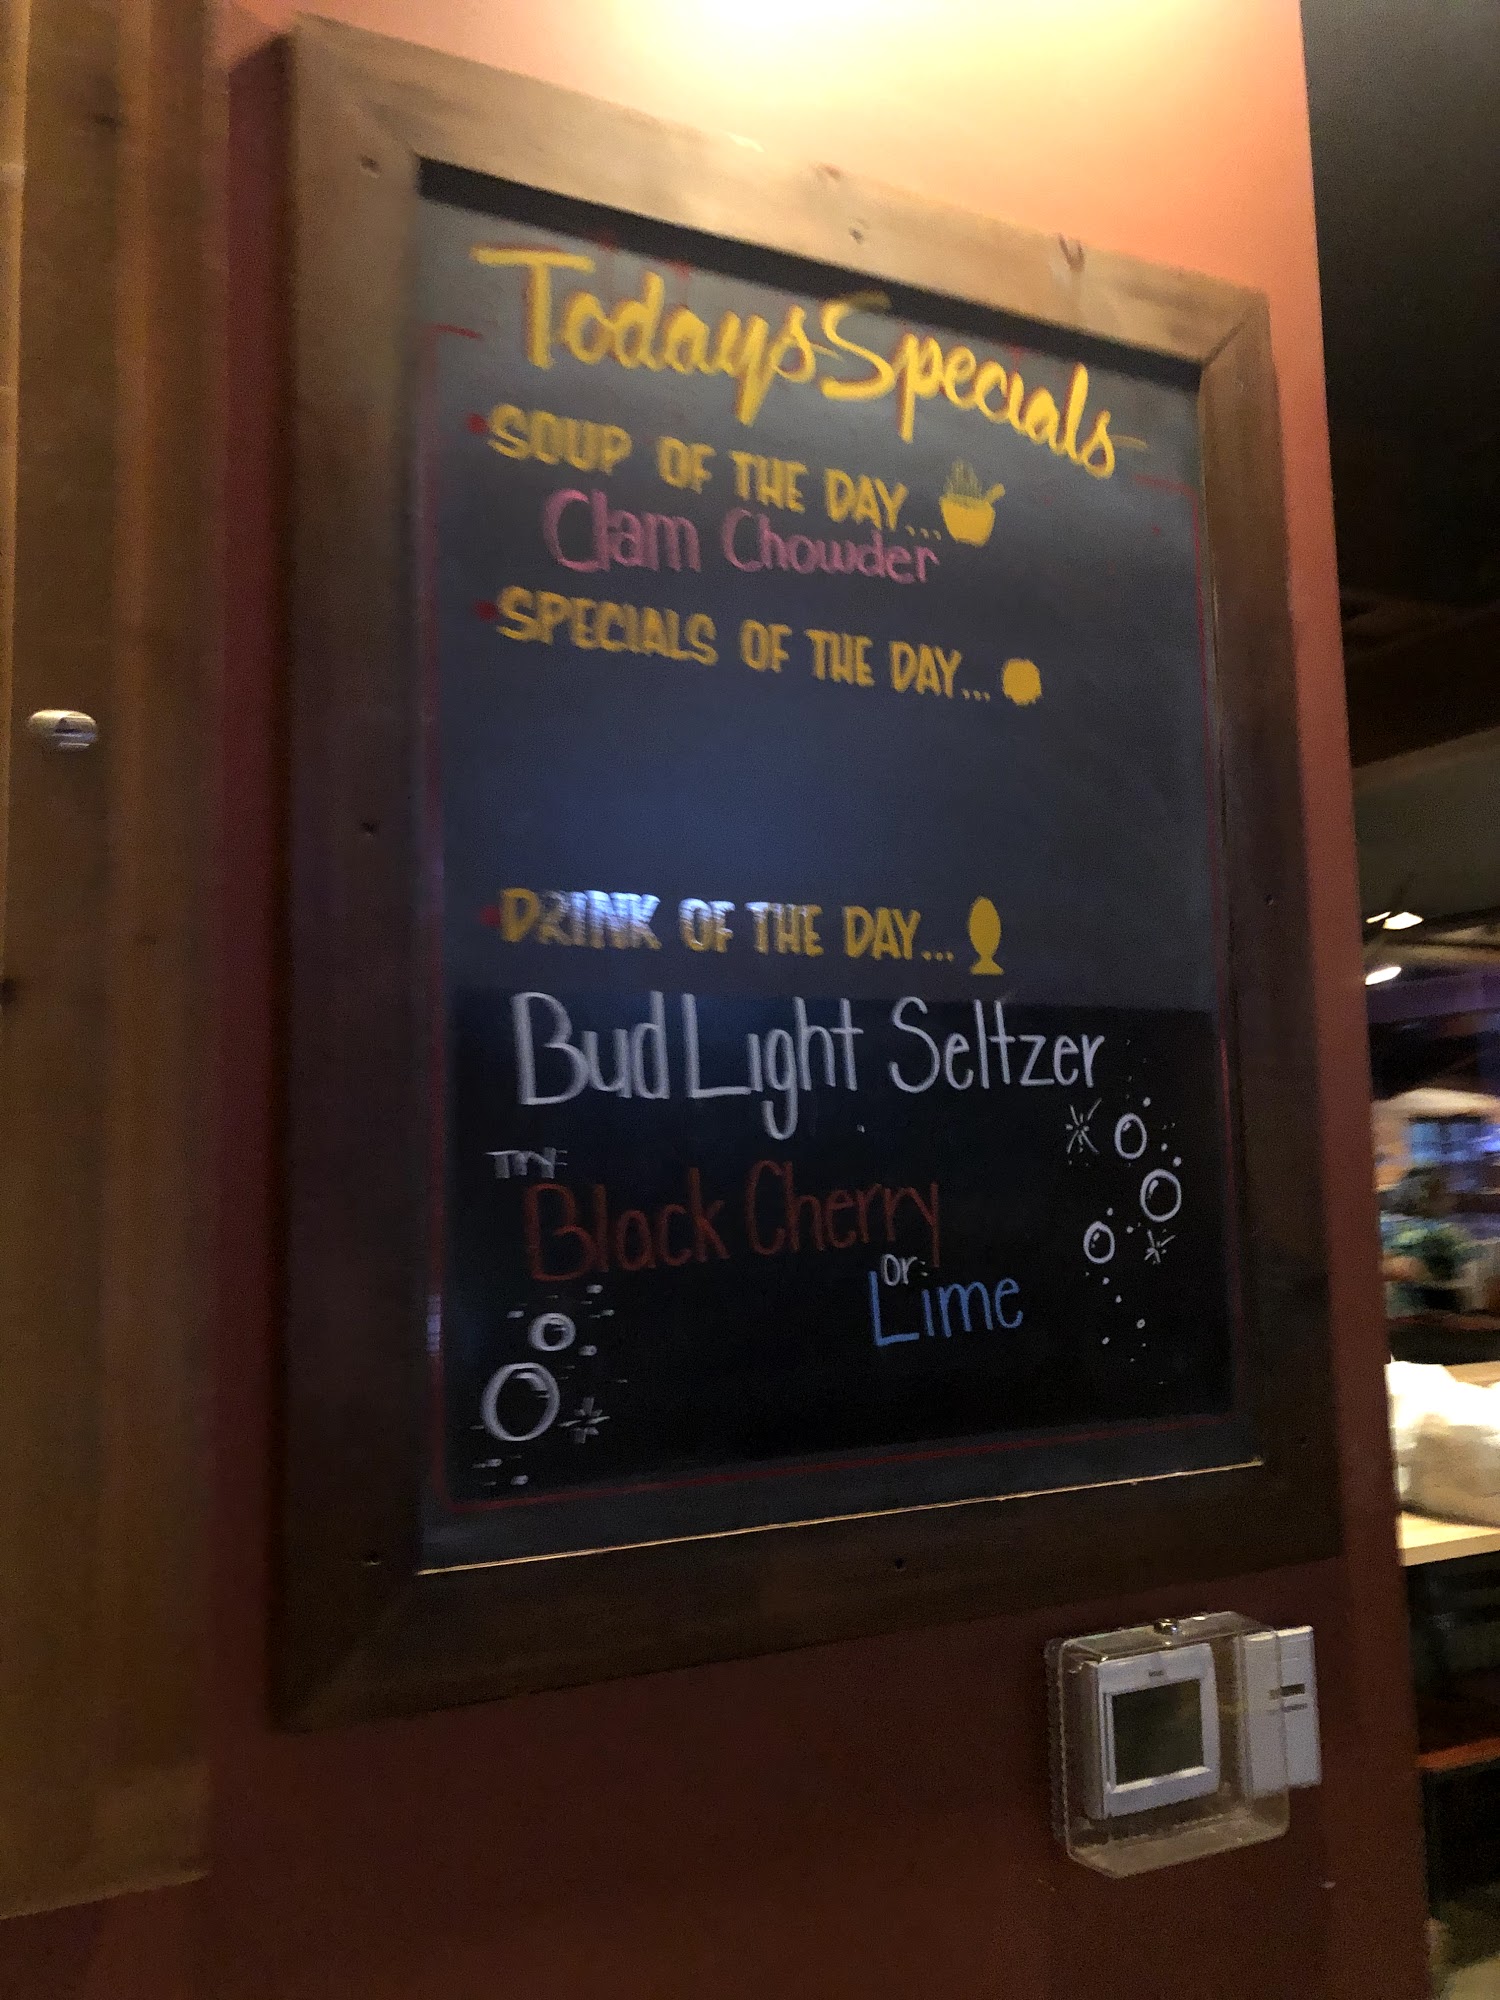 Todays Specials
SOUP OF THE DAY...
Clam Chowder
SPECIALS OF THE DAY...
DRINK OF THE DAY...
Bud Light Seltzer
TRY:
Black Cherry
or
Lime